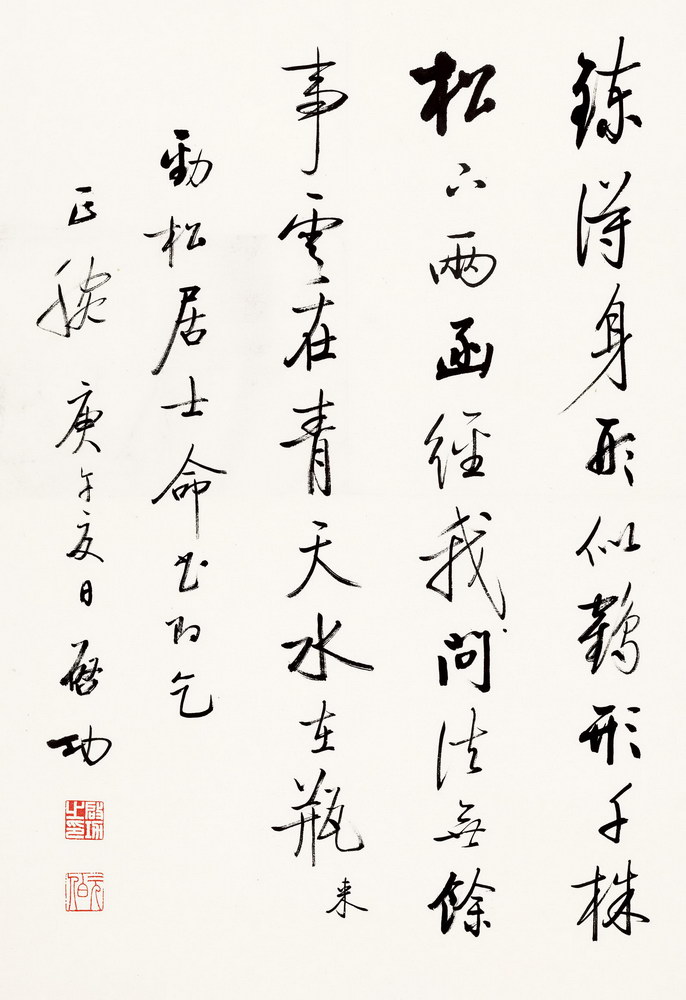 鍊得身形似鶴形千株
松下兩函經我問法無餘
事雲在青天水在瓶 来
勁松居士命书即乞
正腕 庚午夏日 启功
啟功之印
元白